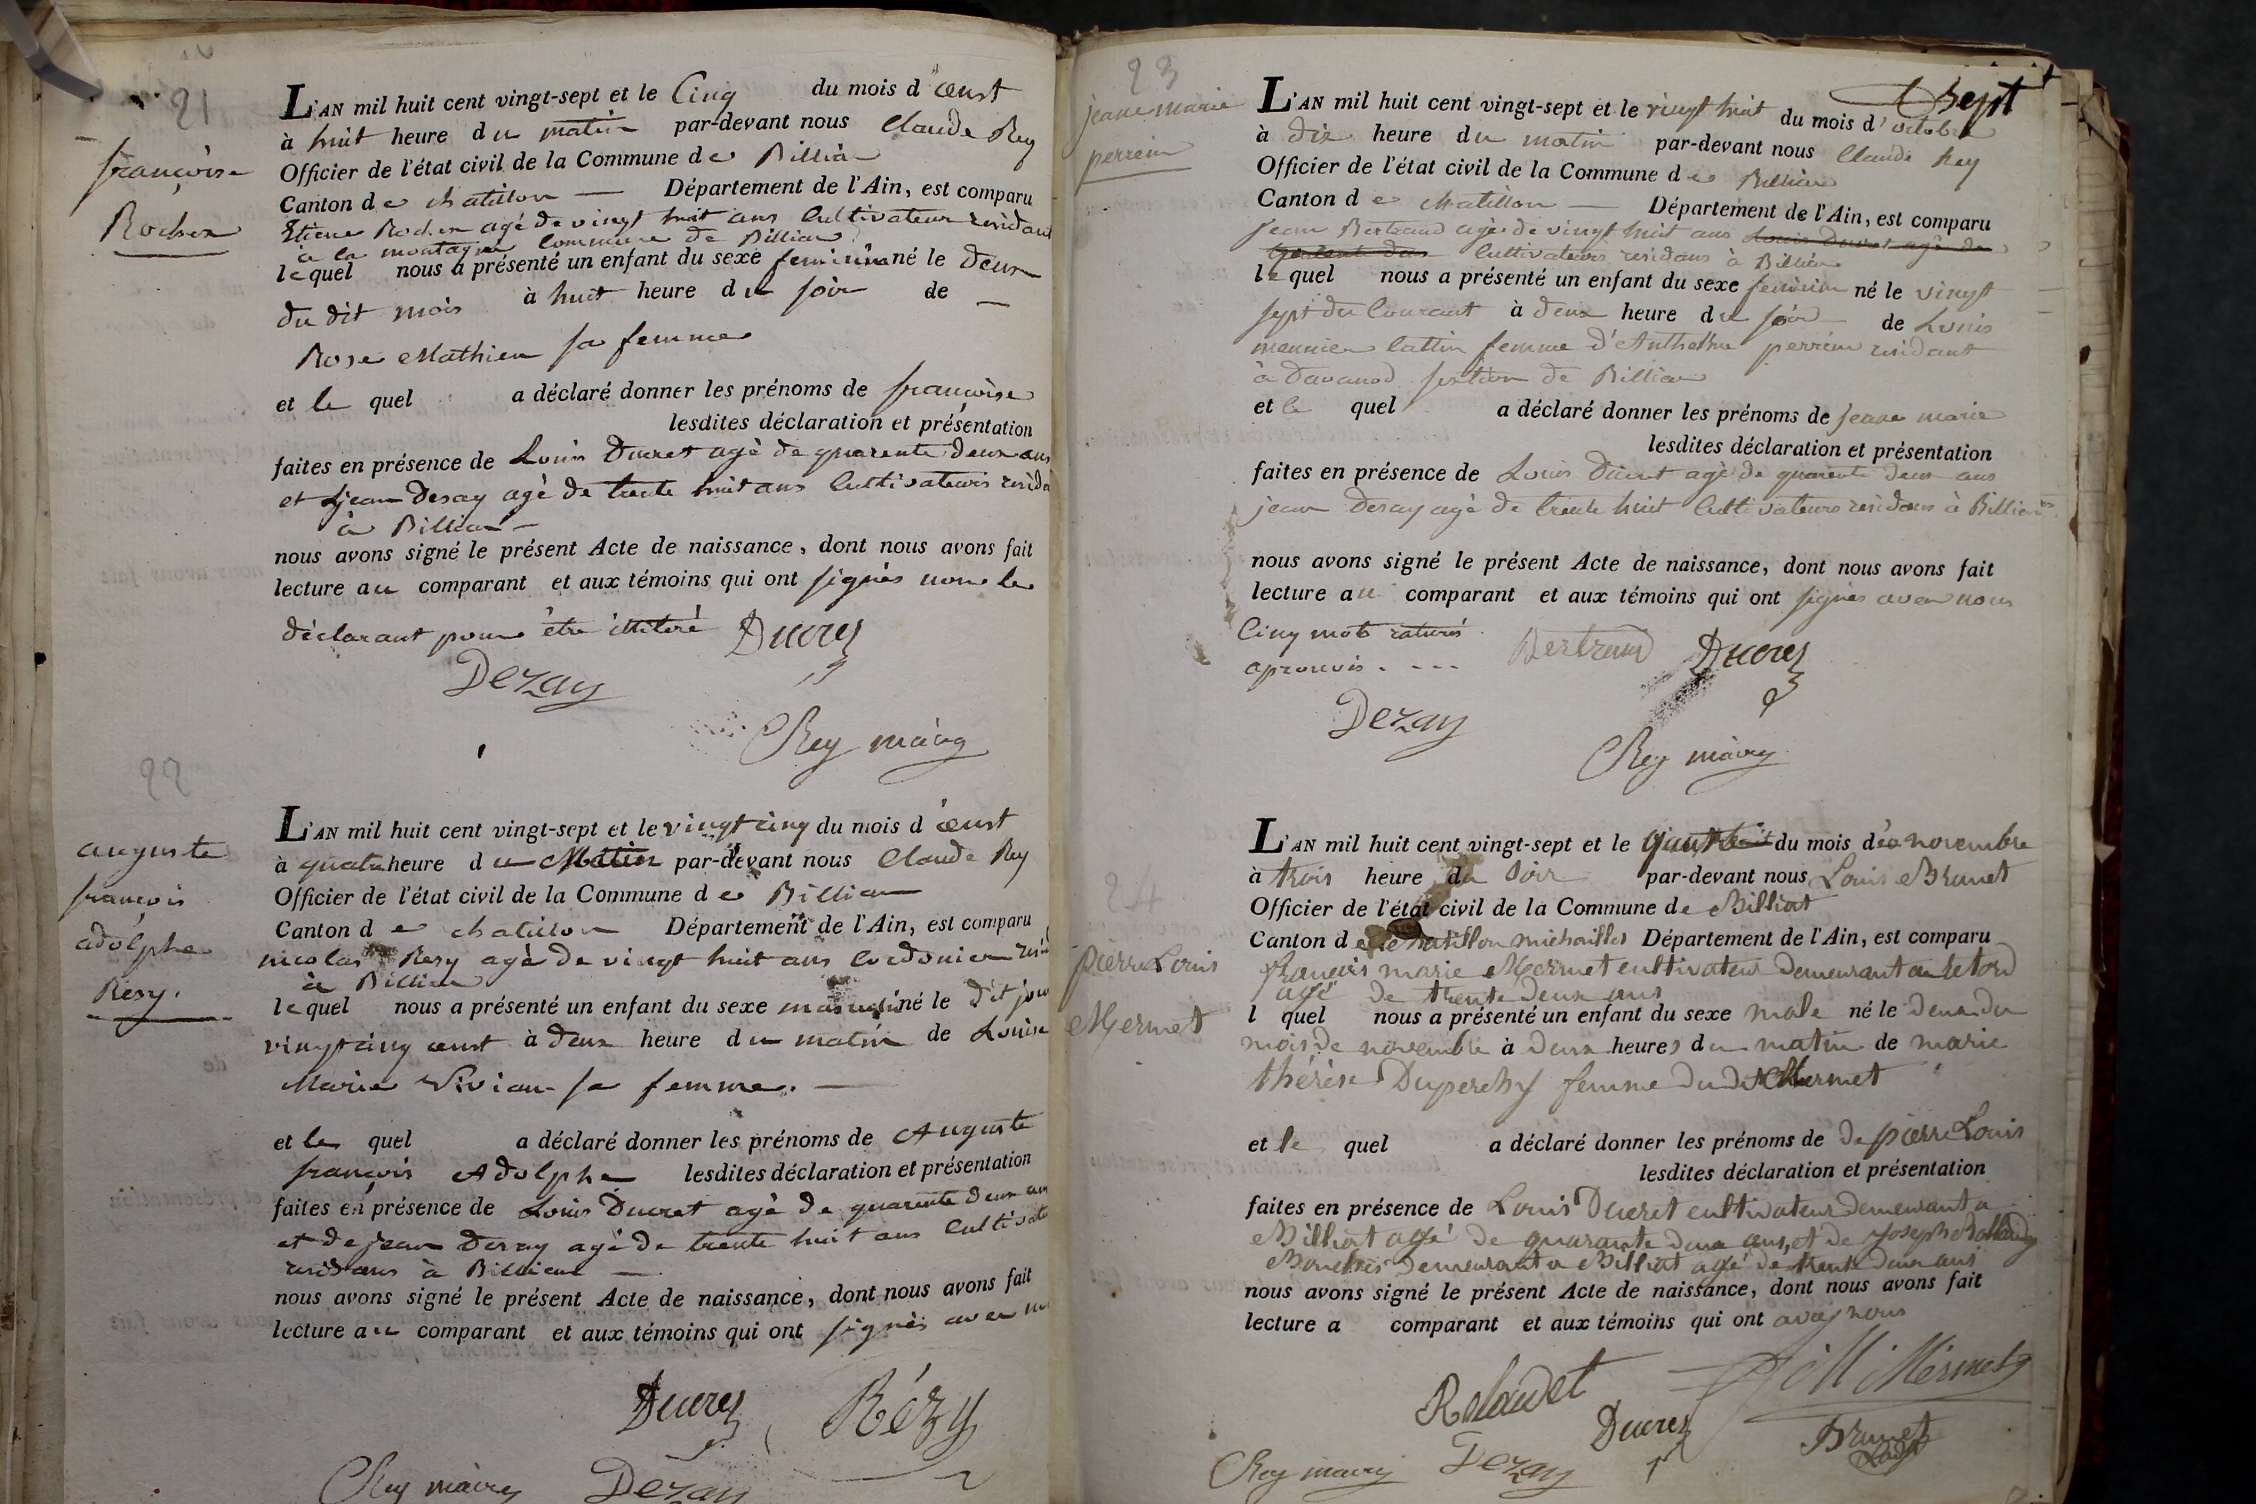 21
françoise
Rochex
L'AN mil huit cent vingt-sept et le Cinq du mois d'œust
à huit heure du matin par-devant nous Claude Rey
Officier de l'état civil de la Commune de Billia
Canton de chatillon — Département de l'Ain, est comparu
Etiene Rochex agé de vingt huit ans Cultivateur residant
à la montagne Commune de Billiat
lequel nous a présenté un enfant du sexe feminin né le deux
du dit mois à huit heure du soir de —
Rose Mathieu sa femme
et le quel a déclaré donner les prénoms de françoise
lesdites déclaration et présentation
faites en présence de Louis Ducret agé de quarente deux ans
et jean Desay agé de trente huit ans Cultivateurs resida
à Billia —
nous avons signé le présent Acte de naissance, dont nous avons fait
lecture au comparant et aux témoins qui ont signés non le
déclarant pour être illiteré Ducrey
Dezay
Rey maire
22
auguste
françois
adolphe
Resy.
L'AN mil huit cent vingt-sept et le vingt cinq du mois d'œust
à quatre heure du Matin par-devant nous Claude Rey
Officier de l'état civil de la Commune de Billia
Canton de chatillon Département de l'Ain, est comparu
nicolas Resy agé de vingt huit ans Cordonier resi
à Billia
lequel nous a présenté un enfant du sexe masculin né le dit jour
vingt cinq œust à deux heure du matin de Louise
Marie Vivian sa femme. —
et le quel a déclaré donner les prénoms de Auguste
françois Adolphe lesdites déclaration et présentation
faites en présence de Louis Ducret agé de quarente deux ans
et de jean Desay agé de trente huit ans Cultivate
residans à Billiat —
nous avons signé le présent Acte de naissance, dont nous avons fait
lecture au comparant et aux témoins qui ont signés avec no
Ducrey Rézy
Rey maire Dezay
23
jeane marie
perrein
Sept
L'AN mil huit cent vingt-sept et le vingt huit du mois d'octobre
à dix heure du matin par-devant nous Claude Rey
Officier de l'état civil de la Commune de Billia
Canton de Chatillon — Département de l'Ain, est comparu
jean Bertrand agé de vingt huit ans Louis Ducret agé de
Cultivateurs residans à Billia
lequel nous a présenté un enfant du sexe feminin né le vingt
sept du Courant à deux heure du soir de Louis
meunier Cattin femme d'Anthelme perrein residant
à davanod section de Billia
et le quel a déclaré donner les prénoms de jeane marie
lesdites déclaration et présentation
faites en présence de Louis Ducret agé de quarente deux ans
jean Desay agé de trente huit Cultivateurs residans à Billia
nous avons signé le présent Acte de naissance, dont nous avons fait
lecture au comparant et aux témoins qui ont signés avec nous
Cinq mots raturés Bertrand Ducrey
aprouvés. ...
Dezay
Rey maire
24
pierre Louis
Mermet
L'AN mil huit cent vingt-sept et le du mois de novembre
à trois heure du soir par-devant nous Louis Brunet
Officier de l'état civil de la Commune de Billiat
Canton de Chatillon michailles Département de l'Ain, est comparu
françois marie Mermet cultivateur demeurant au retord
agé de trente deux ans
l quel nous a présenté un enfant du sexe male né le deux du
mois de novembre à deux heures du matin de marie
thérèse Duperchy femme du dit Mermet
et le quel a déclaré donner les prénoms de de pierre Louis
lesdites déclaration et présentation
faites en présence de Louis Ducret cultivateur demeurant a
Billiat agé de quarante deux ans, et de joseph
demeurant a Billiat agé de trente deux ans
nous avons signé le présent Acte de naissance, dont nous avons fait
lecture a comparant et aux témoins qui ont avec nous
Rolandet Mermet
Ducrey Brunet
Rey maire Dezay